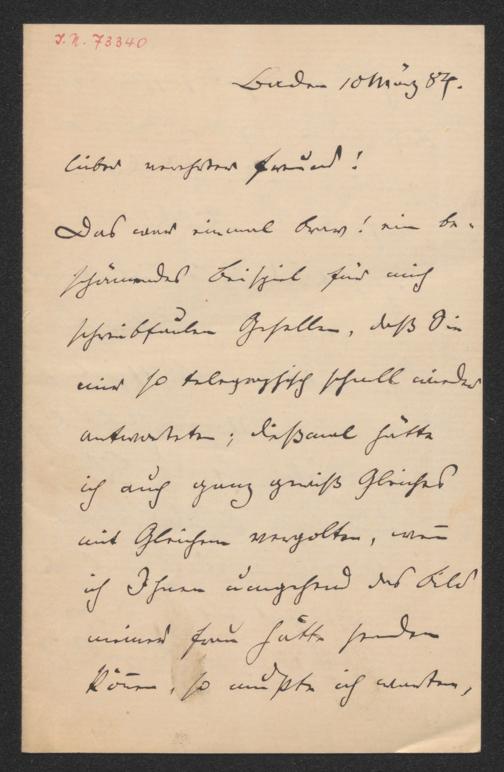 J.N. 73340
Baden 10 März 84.
lieber verehrter Freund!
Das war einmal brav! ein be-
schämendes Beispiel für mich
schreibfaulen Gesellen, daß Sie
mir so telegraphisch schnell wieder
antworteten; dießmal hätte
ich auch ganz gewiß Gleiches
mit Gleichem vergolten, wen̄
ich Ihnen umgehend das Bild
meiner Frau hätte senden
kön̄en, so mußte ich warten,